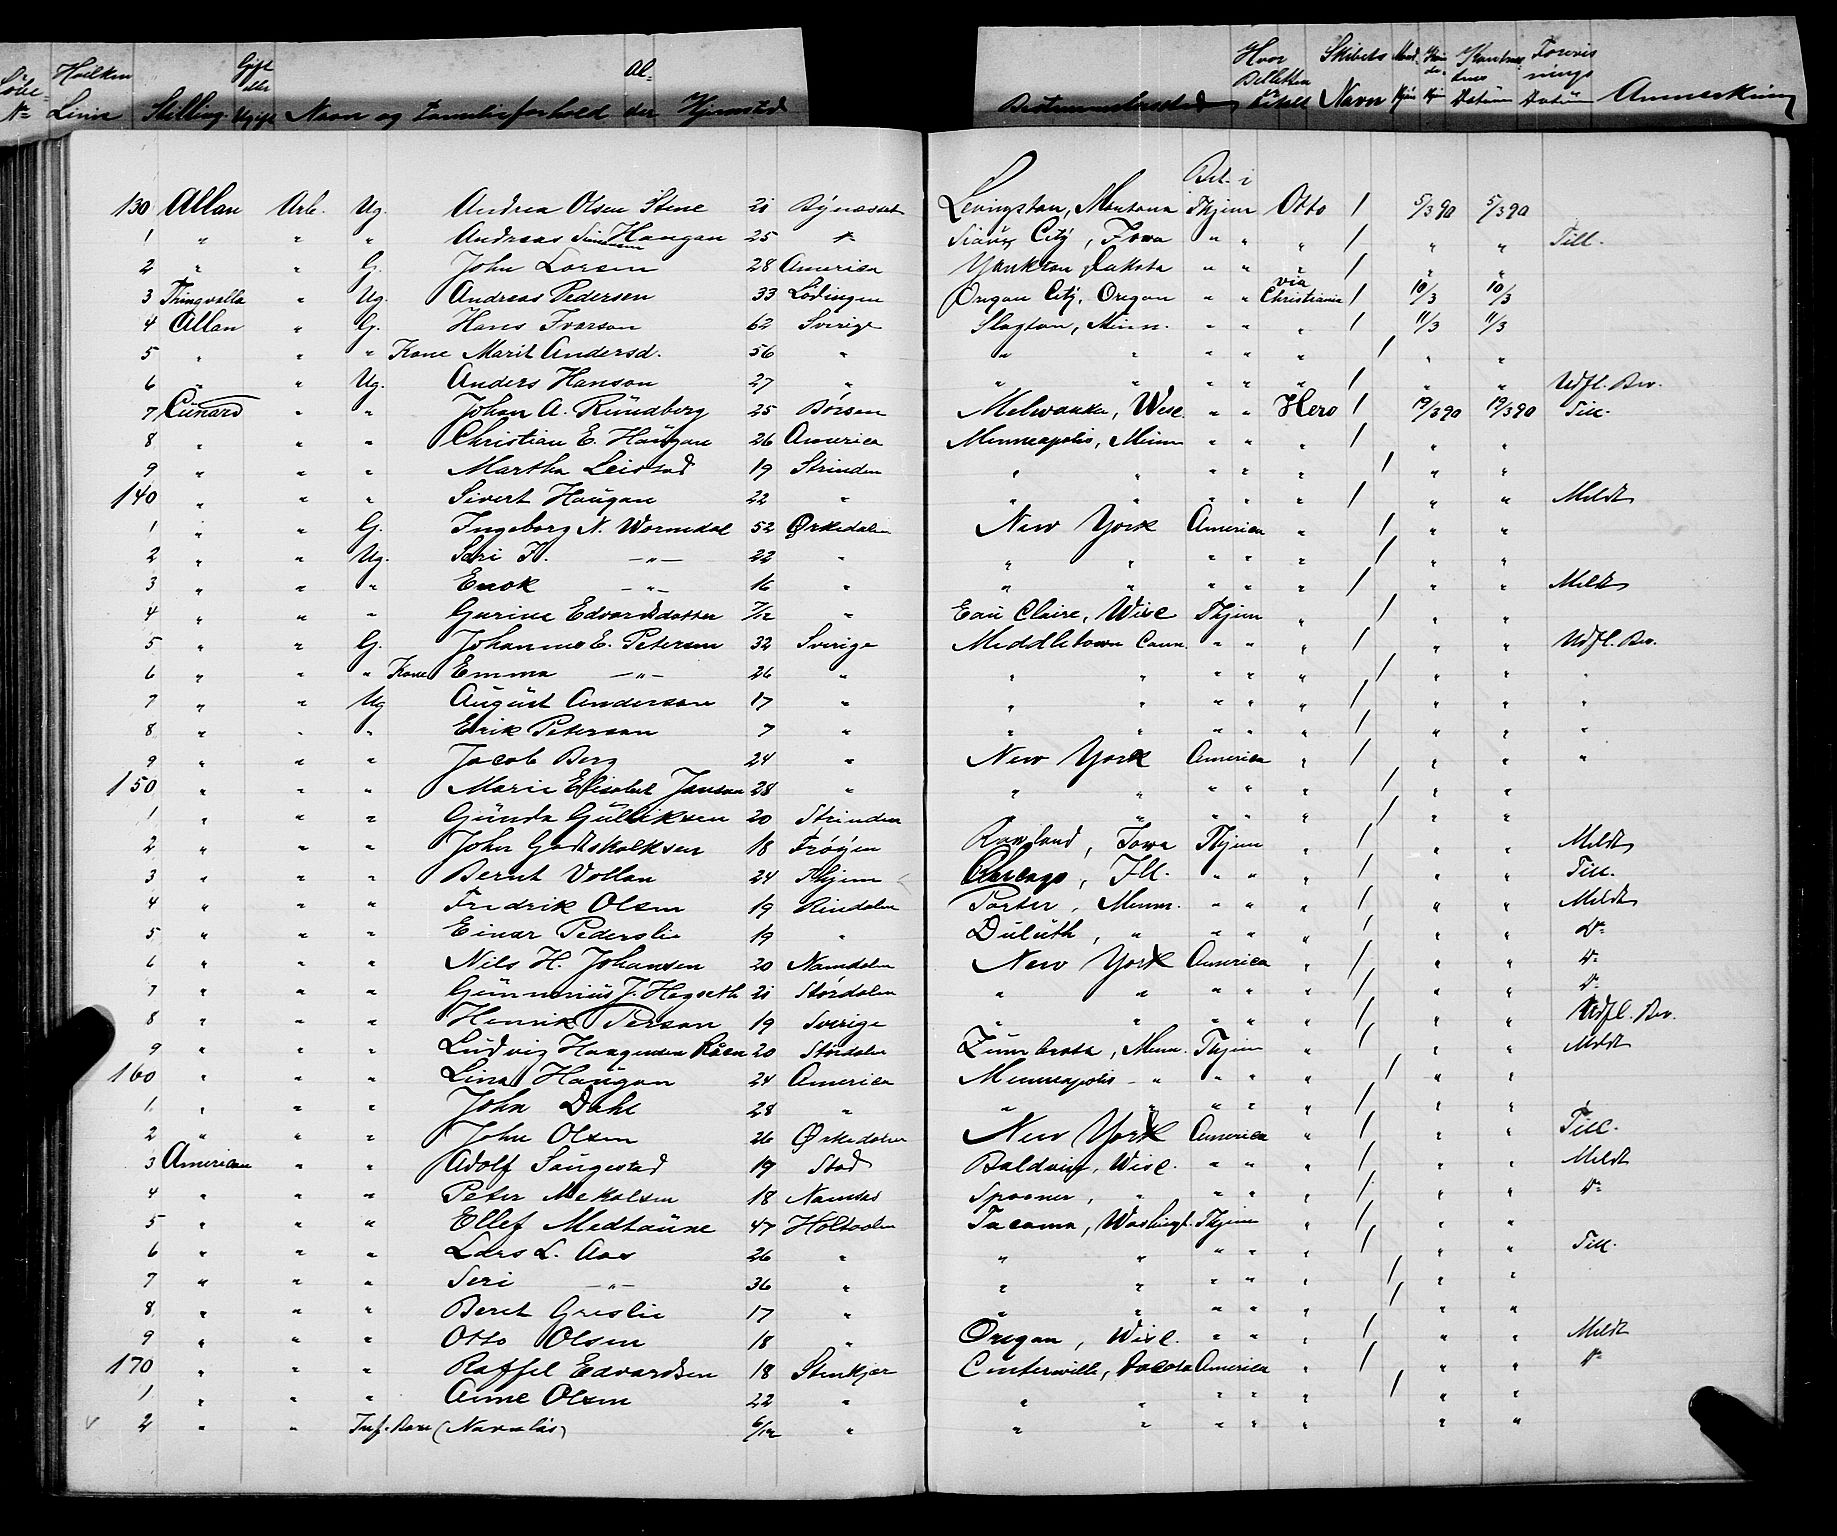 Løbe- N= Hvilken Linie Stilling Gift eller Ugift Navn og Familieforhold Al- der Hjemsted Bestemmelsessted Hvor Billetten er kjøbt Skibets Navn Mand Kjøn Kvin de- Kjøn Kontrac- tens Datum Forevis nings Datum Anmerkning
130 Allan Arb. Ug. Andrea Olsen Stene 21 Bynæsset Levingston, Montana Bet. i Thjem Otto / 5/3 90 5/3 90
1 " " " Andreas Haugan 25 " Sioux City, Iowa " " " / " " Till.
2 " " G. John Larsen 28 America Yankton Dakota " " " / " "
3 Thingvalla " Ug. Andreas Pedersen 33 Lødingen Oregon City, Oregon " " via Christiania / 10/3 10/3
4 Allan " G. Hans Ivarson 62 Sverige Slayton, Minn. " " " / 11/3 11/3
5 " " " Kone Marit Andersd. 56 " " " " " " / " "
6 " " Ug. Anders Hanson 27 " " " " " " / " " Udfl. Bev.
7 Cunard " " Johan A. Rundberg 25 Børsen Melwauke, Wisc. " " Hero / 19/3 90 19/3 90 Till.
8 " " " Christian E. Haugan 26 America Minneapolis, Minn " " " / " "
9 " " " Martha Leistad 19 Strinden " " " " " / " "
140 " " " Sivert Haugan 22 " " " " " " / " " Meldt
1 " " G. Ingeborg N. Wormdal 52 Ørkedalen New York America " / " "
2 " " Ug. Seri I. —"— 22 " " " " " " / " "
3 " " " Enok —"— 16 " " " " " " / " " Meldt
4 " " " Gurine Edvardsdatter 7/12 " Eau Claire, Wisc Thjem " / " "
5 " " G. Johannes E. Petersen 32 Sverige Middletown Conn. " " " / " " Udfl. Bev.
6 " " " Kone Emma —"— 26 " " " " " " / " " "
7 " " Ug August Anderson 17 " " " " " " / " " "
8 " " " Erik Peterson 7 " " " " " " / " " "
9 " " " Jacob Berg 24 " New York America " / " " "
150 " " " Marie Elisabet Janson 28 " " " " " " / " "
1 " " " Gunda Gulliksen 20 Strinden " " " " " / " "
2 " " " John Godtskalksen 18 Frøyen Rowland, Iowa Thjem " / " " Meldt
3 " " " Bernt Vollan 24 Thjem Chicago, Ill. " " " / " " Till.
4 " " " Fredrik Olsen 19 Rindalen Porter, Minn. " " " / " " Meldt
5 " " " Einar Pederslie 19 " Duluth, " " " " / " " Do
6 " " " Nils H. Johansen 20 Namdalen New York America " / " " Do
7 " " " Gunnerius J. Hegseth 21 Størdalen " " " " " / " " Do
8 " " " Henrik Person 19 Sverige " " " " " / " " Udfl. Bev.
9 " " " Ludvig Haagensen Råen 20 Størdalen Zumbrota, Minn. Thjem " / " " Meldt
160 " " " Lina Haugan 24 America Minneapolis - " " " " / " "
1 " " " John Dahl 28 " " " " " " / " "
2 " " " John Olsen 26 Ørkedalen New York America " / " " Till.
3 American " " Adolf Saugestad 19 Stod Baldwin, Wisc. " " " / " " Meldt
4 " " " Peter Mekalsen 18 Namsos Spooner, " " " " / " " Do
5 " " " Ellef Medtaune 47 Holtaalen Tacoma, Washingt. Thjem " / " "
6 " " " Lars L. Aas 26 " " " " " " / " " Till.
7 " " " Seri —"— 36 " " " " " " / " "
8 " " " Beret Greslie 17 " " " " " " / " "
9 " " " Otto Olsen 18 " Oregon, Wisc. " " " / " " Meldt
170 " " " Raffel Edvardsen 18 Stenkjær Centerville, Dacota America " / " " Do
1 " " " Anne Olsen 22 " " " " " " / " "
2 " " Inf. Bare (Navnløs) 6/12 " " " " " " " "